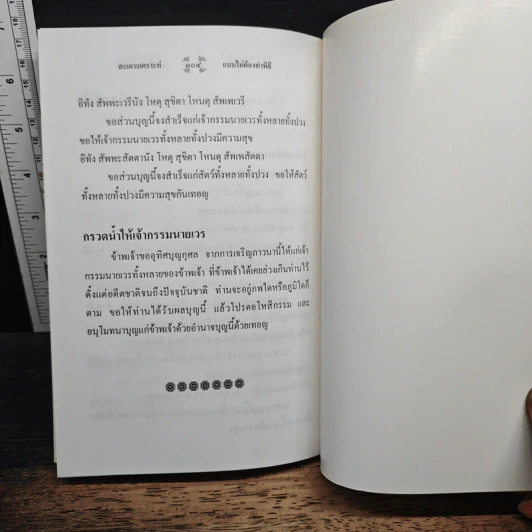 สะเดาะเคราะห์ ๑๐๔ แบบไม่ต้องทำพิธี
อิทัง สัพพะเวรีนัง โหตุ สุขิตา โหนตุ สัพเพเวรี
ขอส่วนบุญนี้จงสำเร็จแก่เจ้ากรรมนายเวรทั้งหลายทั้งปวง
ขอให้เจ้ากรรมนายเวรทั้งหลายทั้งปวงมีความสุข
อิทัง สัพพะสัตตานัง โหตุ สุขิตา โหนตุ สัพเพสัตตา
ขอส่วนบุญนี้จงสำเร็จแก่สัตว์ทั้งหลายทั้งปวง ขอให้สัตว์
ทั้งหลายทั้งปวงมีความสุขกันเทอญ
กรวดน้ำให้เจ้ากรรมนายเวร
ข้าพเจ้าขออุทิศบุญกุศล จากการเจริญภาวนานี้ให้แก่เจ้า
กรรมนายเวรทั้งหลายของข้าพเจ้า ที่ข้าพเจ้าได้เคยล่วงเกินท่านไว้
ตั้งแต่อดีตชาติจนถึงปัจจุบันชาติ ท่านจะอยู่ภพใดหรือภูมิใดก็
ตาม ขอให้ท่านได้รับผลบุญนี้ แล้วโปรดอโหสิกรรม และ
อนุโมทนาบุญแก่ข้าพเจ้าด้วยอำนาจบุญนี้ด้วยเทอญ